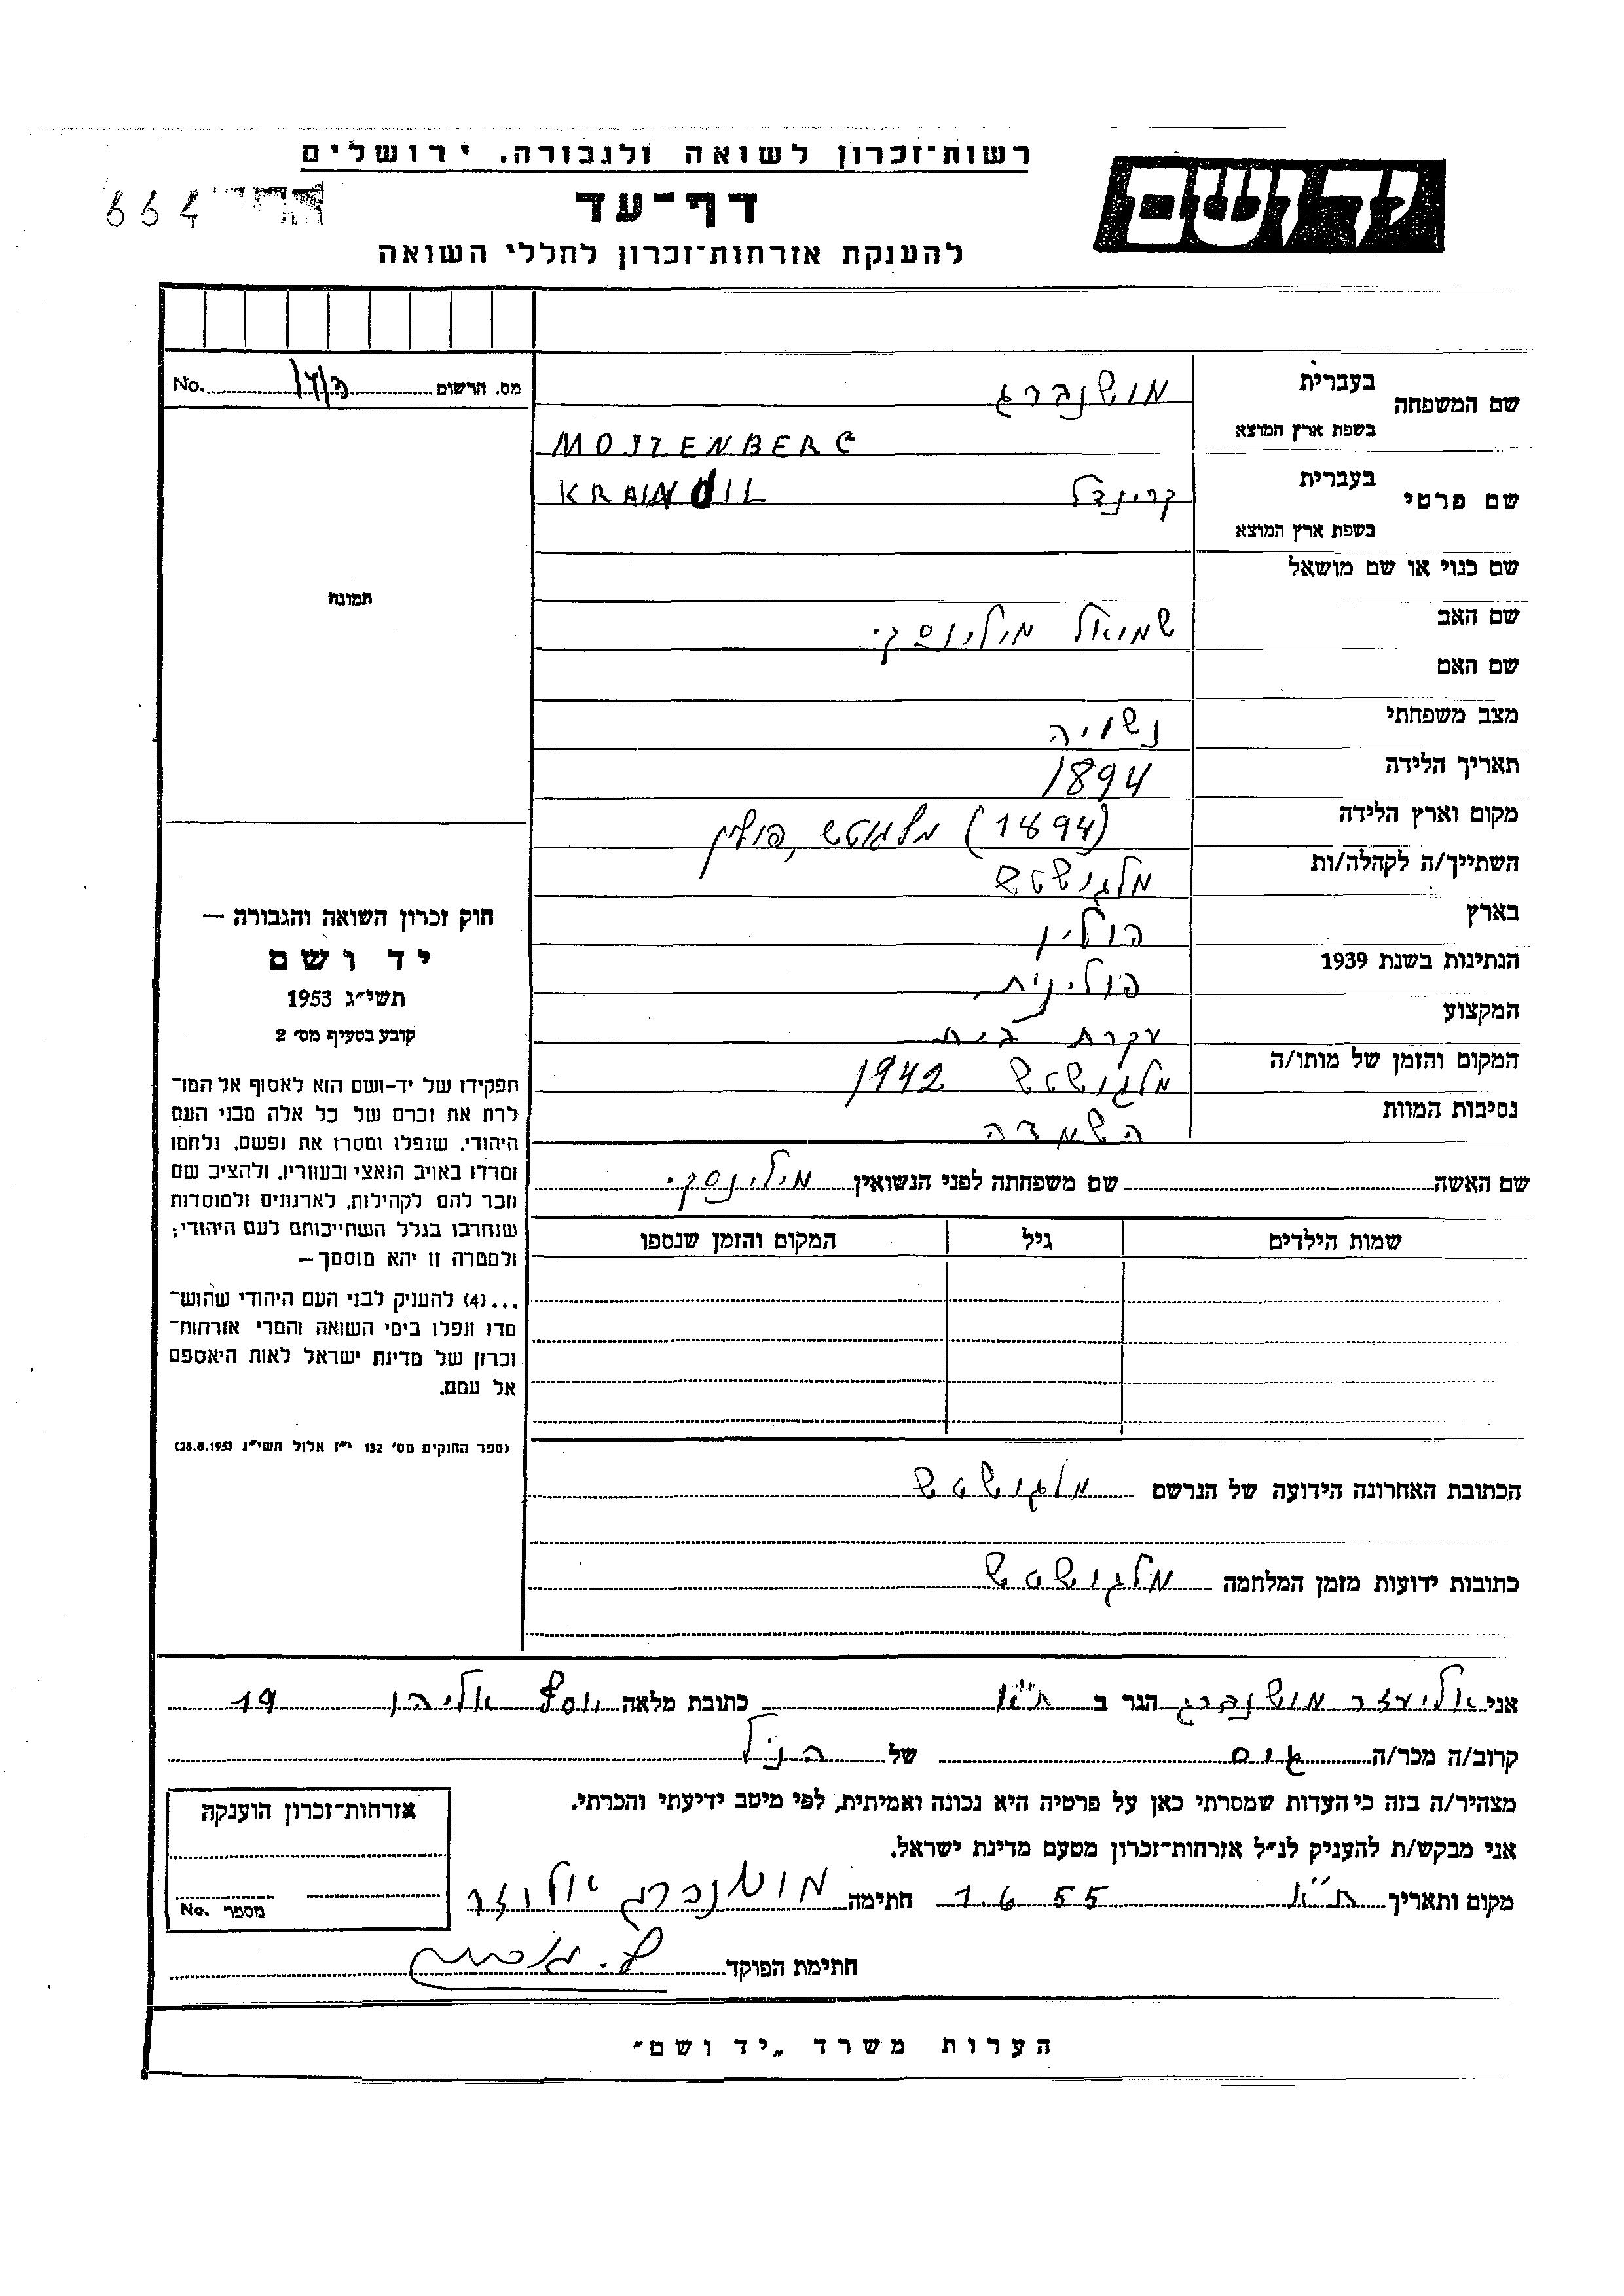 רשות־זכרון לשואה ולגבורה. ירושלים
יד ושם
דף־עד
664
להענקת אזרחות־זכרון לחללי השואה
מס. הרשום No.
שם המשפחה בעברית מושנברג
בשפת ארץ המוצא MOJZENBERG
שם פרטי בעברית קרינדל KRAINDIL
בשפת ארץ המוצא
שם כנוי או שם מושאל
שם האב שמואל מילינסקי
שם האם
מצב משפחתי נשויה
תאריך הלידה 1894
מקום וארץ הלידה (1894) פולין
השתייך/ה לקהלה/ות מלגושטש
בארץ פולין
הנתינות בשנת 1939 פולינית
המקצוע עקרת בית
המקום והזמן של מותו/ה מלגושטש 1942
נסיבות המוות השמדה
שם האשה שם משפחתה לפני הנשואין מילינסקי
שמות הילדים גיל המקום והזמן שנספו
הכתובת האחרונה הידועה של הנרשם מלגושטש
כתובות ידועות מזמן המלחמה מלגושטש
תמונה
חוק זכרון השואה והגבורה —
יד ושם
תשי״ג 1953
קובע בסעיף מס׳ 2
תפקידו של יד-ושם הוא לאסוף אל המו־
לדת את זכרם של כל אלה מבני העם
היהודי, שנפלו ומסרו את נפשם, נלחמו
ומרדו באויב הנאצי ובעוזריו, ולהציב שם
וזכר להם לקהילות, לארגונים ולמוסדות
שנחרבו בגלל השתייכותם לעם היהודי;
ולמטרה זו יהא מוסמך—
...(4) להעניק לבני העם היהודי שהוש־
מדו ונפלו בימי השואה והמרי אזרחות־
זכרון של מדינת ישראל לאות היאספם
אל עמם.
(ספר החוקים מס׳ 132 י״ז אלול תשי״ג 28.8.1953)
אני אליעזר מושנברג הגר ב ת״א כתובת מלאה יוסף אליהו 19
קרוב/ה מכר/ה של הנ״ל
מצהיר/ה בזה כי העדות שמסרתי כאן על פרטיה היא נכונה ואמיתית, לפי מיטב ידיעתי והכרתי.
אני מבקש/ת להעניק לנ״ל אזרחות־זכרון מטעם מדינת ישראל.
מקום ותאריך ת״א 1.6 55 חתימה מושנברג אליעזר
חתימת הפוקד
אזרחות־זכרון הוענקה
מספר No.
הערות משרד „יד ושם״